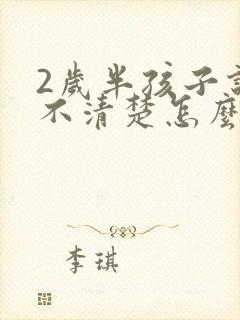 2歲半孩子
不清楚怎麼
李琪